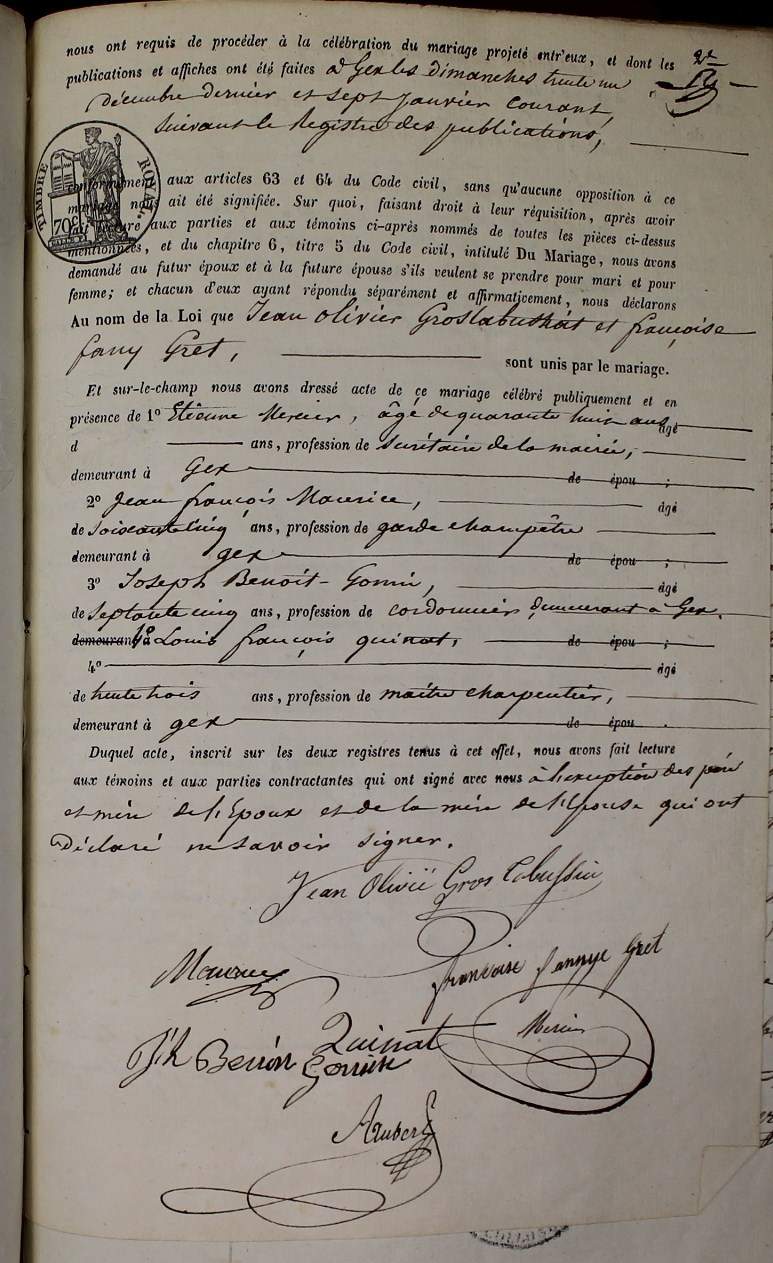 nous ont requis de procéder à la célébration du mariage projeté entr'eux, et dont les
publications et affiches ont été faites à Gex les dimanches trente un
décembre dernier et sept janvier courant,
suivant le Registre des publications,
TIMBRE ROYAL
70c
conformément aux articles 63 et 64 du Code civil, sans qu'aucune opposition à ce
mariage nous ait été signifiée. Sur quoi, faisant droit à leur réquisition, après avoir
fait lecture aux parties et aux témoins ci-après nommés de toutes les pièces ci-dessus
mentionnées, et du chapitre 6, titre 5 du Code civil, intitulé Du Mariage, nous avons
demandé au futur époux et à la future épouse s'ils veulent se prendre pour mari et pour
femme; et chacun d'eux ayant répondu séparément et affirmativement, nous déclarons
Au nom de la Loi que Jean Olivier Groslabussiat et françoise
fany Gret, sont unis par le mariage.
Et sur-le-champ nous avons dressé acte de ce mariage célébré publiquement et en
présence de 1o Etienne Mercier, âgé de quarante huit ans âgé
d ans, profession de secrétaire de la mairie,
demeurant à Gex de épou ;
2o Jean françois Maurice, âgé
de soixante cinq ans, profession de garde champêtre
demeurant à gex de épou ;
3o Joseph Benoit-Gonin, âgé
de septante cinq ans, profession de cordonnier demeurant à Gex.
demeurant à 4o Louis françois quinat, de épou ;
4o âgé
de trente trois ans, profession de maître charpentier,
demeurant à gex de épou .
Duquel acte, inscrit sur les deux registres tenus à cet effet, nous avons fait lecture
aux témoins et aux parties contractantes qui ont signé avec nous à l'exception des père
et mère de l'Epoux et de la mère de l'Epouse qui ont
Déclaré ne savoir signer.
Jean Olivié Gros
françoise fannye Gret
Maurice
Quinat Mercier
Benoit Gonin
Aubert